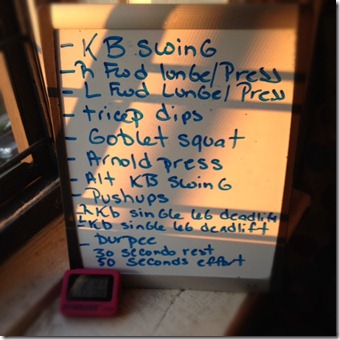 - KB swing
- R Fwd lunge/Press
- L Fwd Lunge/Press
- tricep dips
- Goblet squat
- Arnold press
- Alt KB swing
- Pushups
- R Kb single leg deadlift
- L Kb single leg deadlift
- burpee
30 seconds rest
50 seconds effort